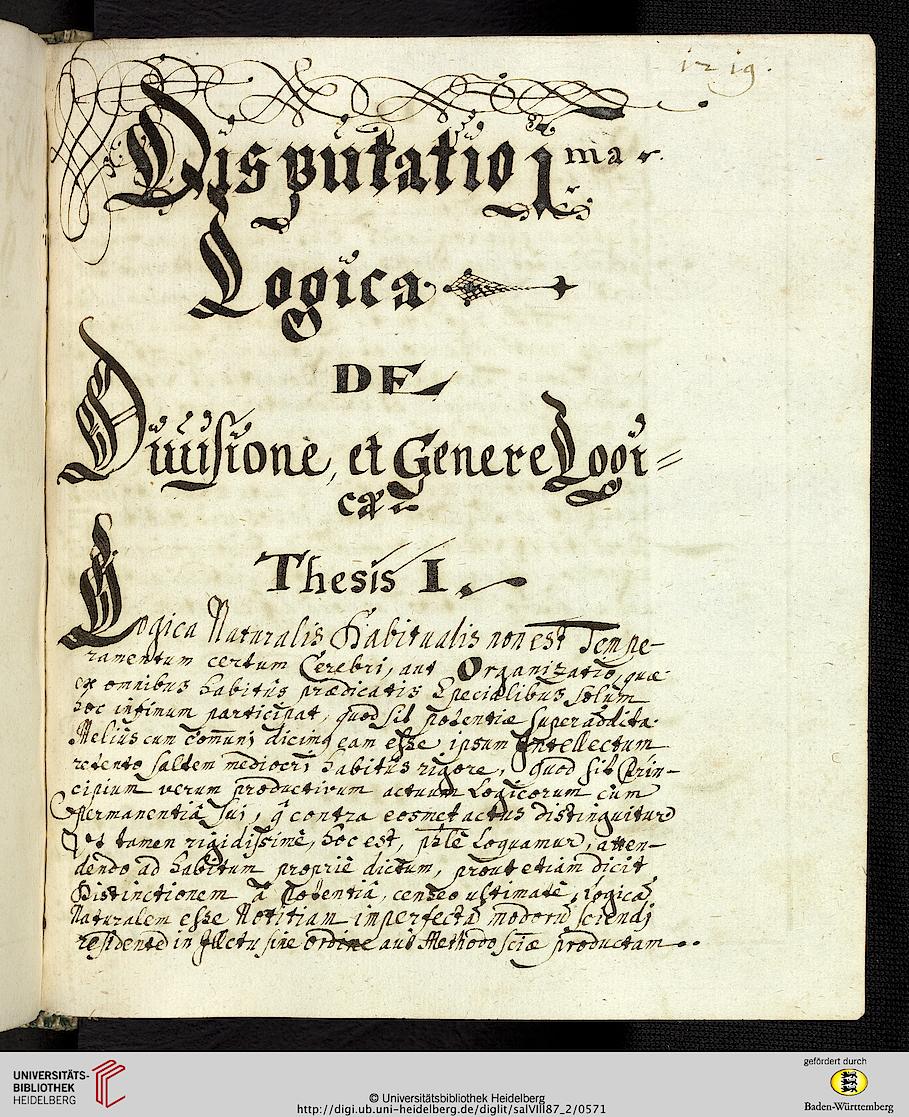 1219.
Disputatio 1ma
Logica
DE
Diuisione, et Genere Logi=
cæ
Thesis I.
Logica Naturalis Habitualis non est Tempe-
ramentum certum Cerebri, aut Organizatio, quæ
ex omnibus habitûs prædicatis specialibus solum
hoc infimum participat, quod sit potentiæ superaddita.
Melius cum comuni dicimq eam esse ipsum Intellectum
retento saltem mediocri habitûs rigore, quod sit Prin-
cipium verum productivum actuum Logicorum cum
permanentiâ sui, q contra eosmet actus distinguitur
Vt tamen rigidissimè, hoc est, phlè loquamur, atten-
dendo ad habitum propriè dictum, prout etiam dicit
Distinctionem â Potentiâ, censeo ultimatè, Logicã
Naturalem esse Notitiam imperfectã modorũ sciendi
residentẽ in Jllectu sine ordine aut Methodo sciæ productam
UNIVERSITÄTS-
BIBLIOTHEK
HEIDELBERG
© Universitätsbibliothek Heidelberg
http://digi.ub.uni-heidelberg.de/diglit/salVIII87_2/0571
gefördert durch
Baden-Württemberg